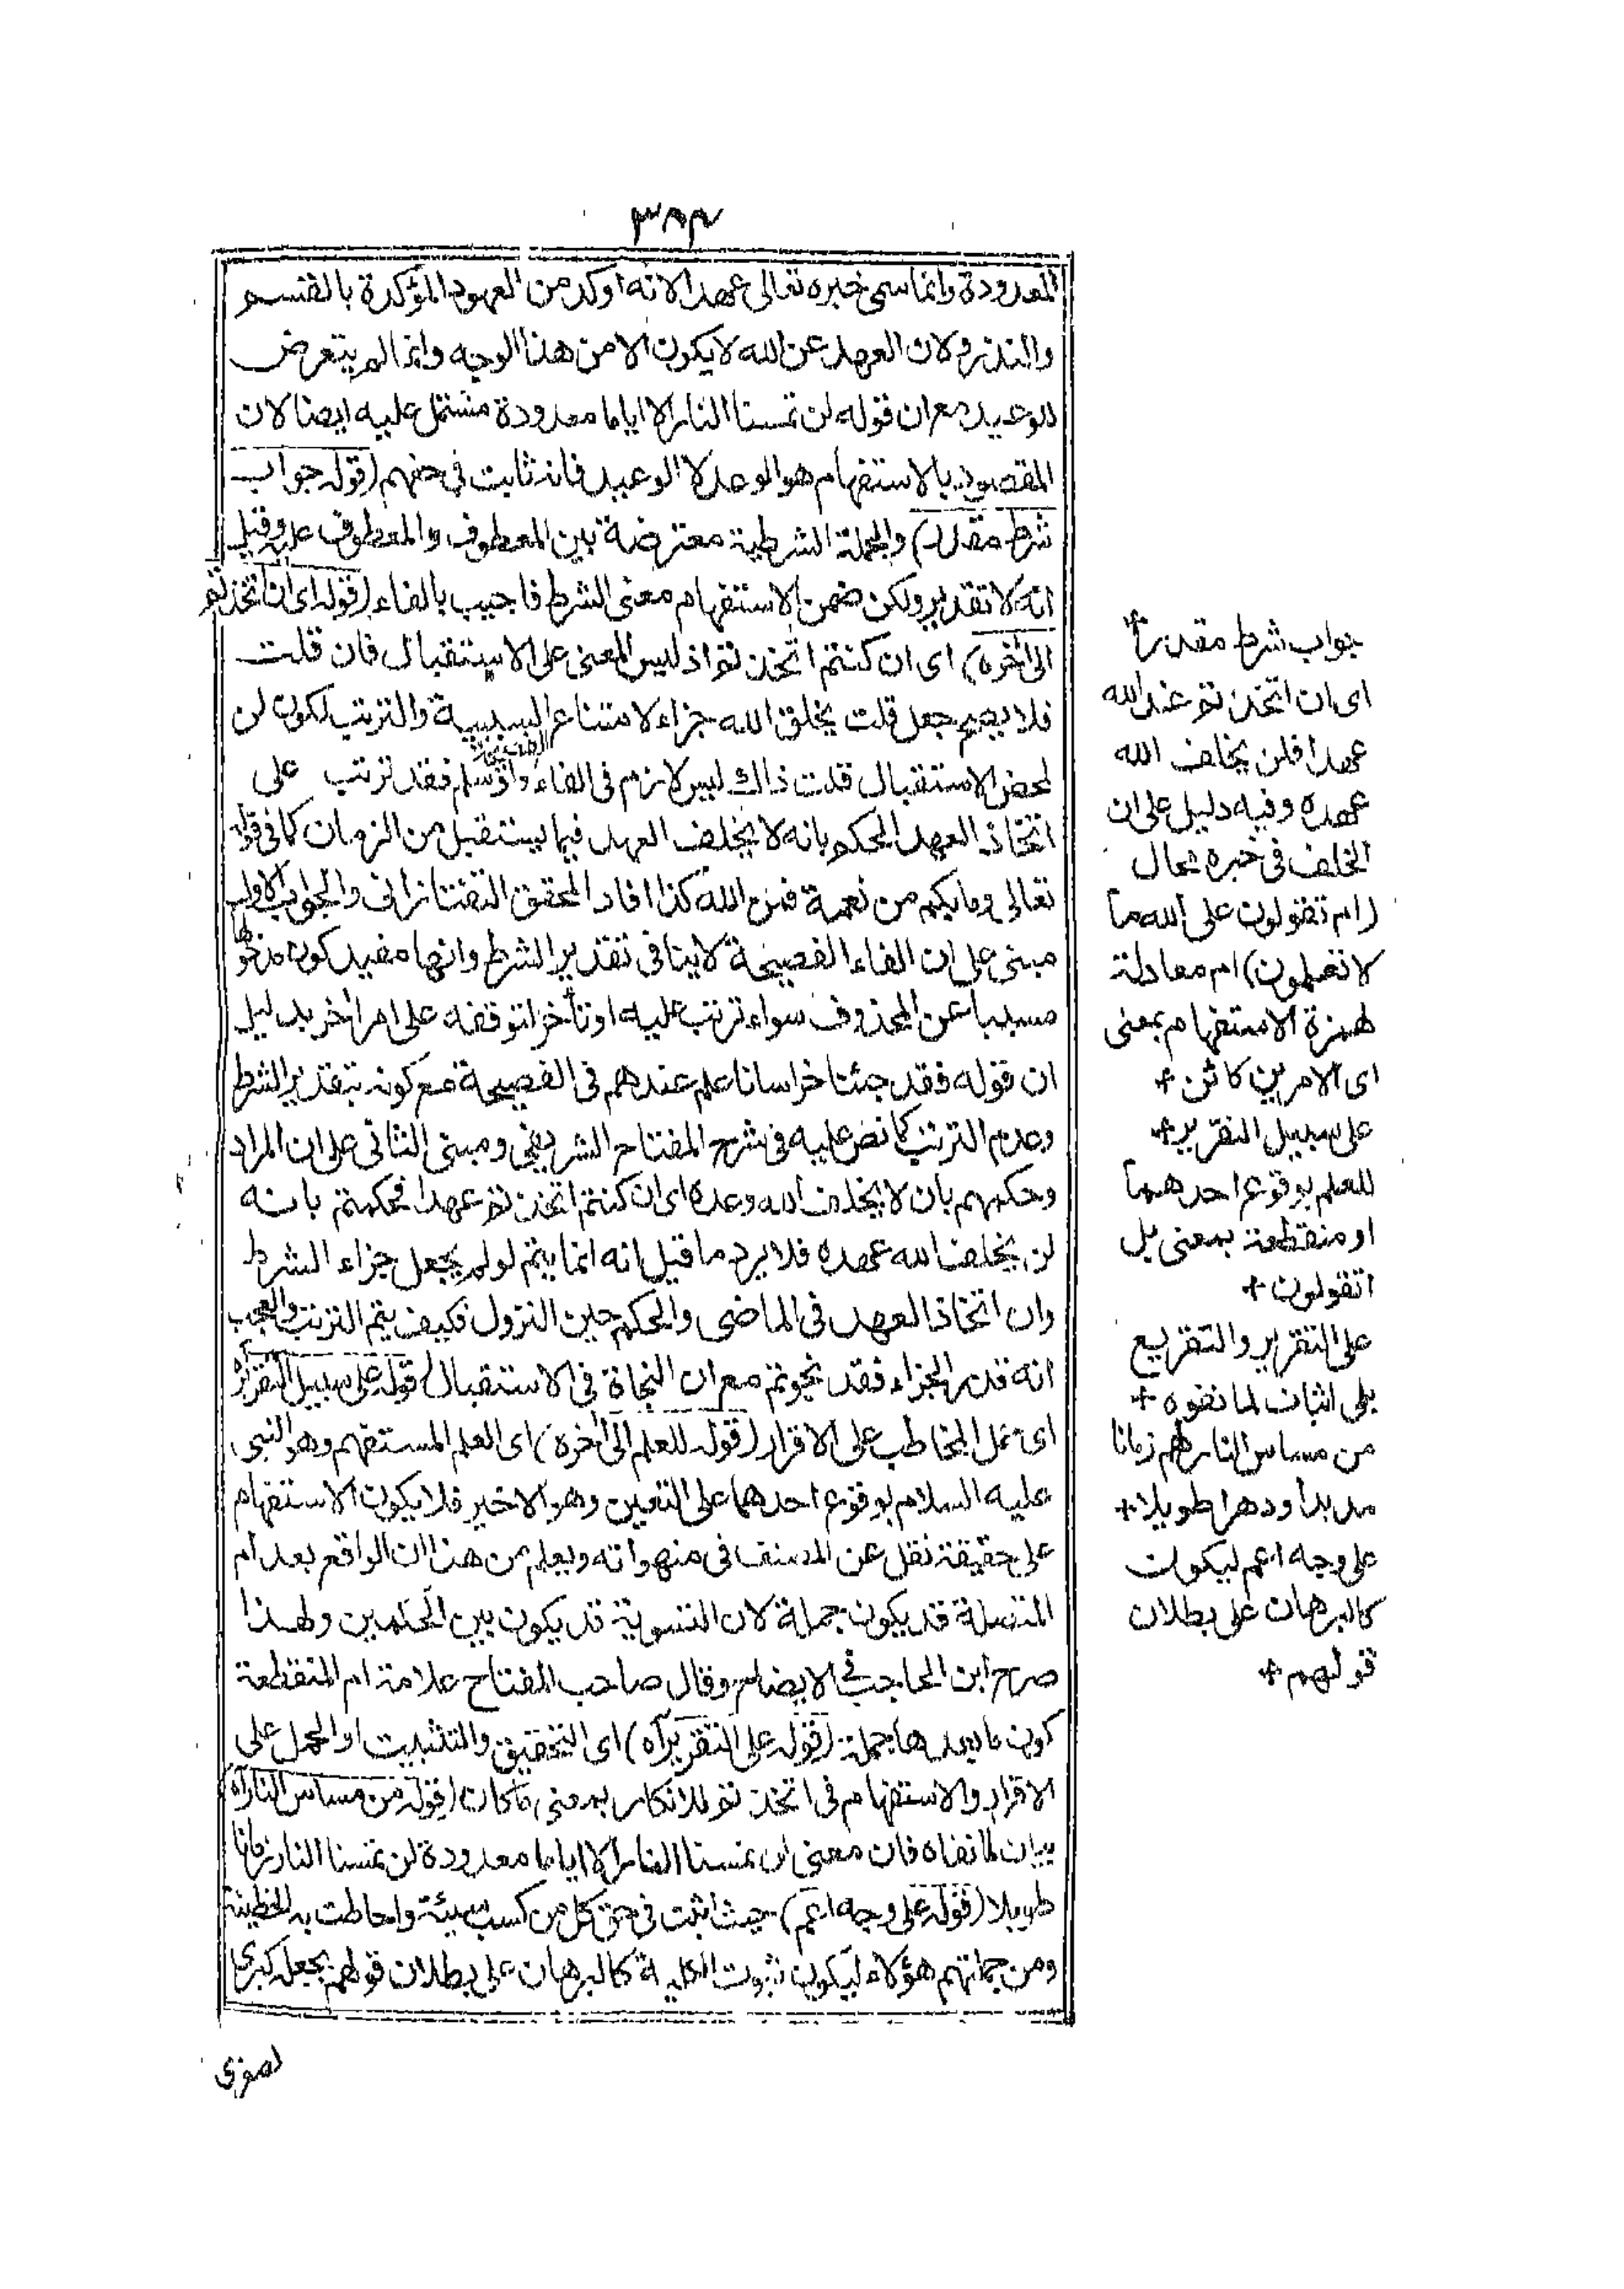 ٣٨٤
المعدودة وانما سمى خبره تعالى عهدا لانه اوكد من العهود المؤكدة بالقسم
والنذر ولان العهد عن الله لا يكون الا من هذا الوجه وانما لم يتعرض
للوعيد مع ان قوله لن تمسنا النار الا اياما معدودة مشتمل عليه ايضا لان
المقصود بالاستفهام هو الوعد لا الوعيد فانه ثابت في حقهم (قوله جواب
شرط مقدر) والجملة الشرطية معترضة بين المعطوف والمعطوف عليه وقيل
انه لا تقدير ولكن ضمن الاستفهام معنى الشرط فاجيب بالفاء (قوله اى ان اتخذتم
الى آخره) اى ان كنتم اتخذتم اذ ليس المعنى على الاستقبال فان قلت
فلا يصح جعل قلت يخلق الله جزاء لامتناع السببية والترتب لكون لن
لمحض الاستقبال قلت ذلك ليس لازم فى الفاء الفصيحة ولو سلم فقد ترتب على
اتخاذ العهد الحكم بانه لا يخلف العهد فيما يستقبل من الزمان كما فى قوله
تعالى وما بكم من نعمة فمن الله كذا افاد المحقق التفتازانى والجواب الاول
مبنى على ان الفاء الفصيحة لا ينافى تقدير الشرط وانها مفيد كون مدخولها
مسببا عن المحذوف سواء ترتب عليه او تأخر لتوقفه على امر آخر بدليل
ان قوله فقد جئنا خراسانا علم عندهم فى الفصيحة مع كونه بتقدير الشرط
وعدم الترتب كما نص عليه فى شرح المفتاح الشريفى ومبنى الثانى على ان المراد
وحكمهم بان لا يخلف الله وعده اى ان كنتم اتخذتم عهدا فحكمتم بانه
لن يخلف الله عهده فلا يرد ما قيل انه انما يتم لو لم يجعل جزاء الشرط
وان اتخاذ العهد فى الماضى والحكم حين النزول فكيف يتم الترتب والعجب
انه قدر الجزاء فقد نجوتم مع ان النجاة فى الاستقبال (قوله على سبيل التقرير آه)
اى حمل المخاطب على الاقرار (قوله للعلم الى آخره) اى العلم المستفهم وهو النبى
عليه السلام بوقوع احدهما على التعين وهو الاخير فلا يكون الاستفهام
على حقيقة نقل عن المصنف فى منهواته ويعلم من هذا ان الواقع بعد ام
المتصلة قد يكون جملة لان التسوية قد يكون بين الحكمين ولهذا
صرح ابن الحاجب فى الايضاح وقال صاحب المفتاح علامة ام المنقطعة
كون ما بعدها جملة (قوله على التقرير آه) اى التحقيق والتثبيت او الحمل على
الاقرار والاستفهام فى اتخذتم للانكار بمعنى ما كان (قوله من مساس النار آه)
بيان لما نفاه فان معنى لن تمسنا النار الا اياما معدودة لن تمسنا النار زمانا
طويلا (قوله على وجه اعم) حيث اثبت فى حق كل من كسب سيئة واحاطت به الخطيئة
ومن جملتهم هؤلاء ليكون ثبوت الكلية كالبرهان على بطلان قولهم بجعله كبرى
لصغرى
جواب شرط مقدر آ
اى ان اتخذتم عند الله
عهدا فلن يخلف الله
عهده وفيه دليل على ان
الخلف فى خبره محال
(ام تقولون على الله ما
لا تعلمون) ام معادلة
لهمزة الاستفهام بمعنى
اى الامرين كائن +
على سبيل التقرير +
للعلم بوقوع احدهما
او منقطعة بمعنى بل
اتقولون +
على التقرير والتقريع
بلى اثبات لما نفوه +
من مساس النار لهم زمانا
مديدا ودهرا طويلا +
على وجه اعم ليكون
كالبرهان على بطلان
قولهم +